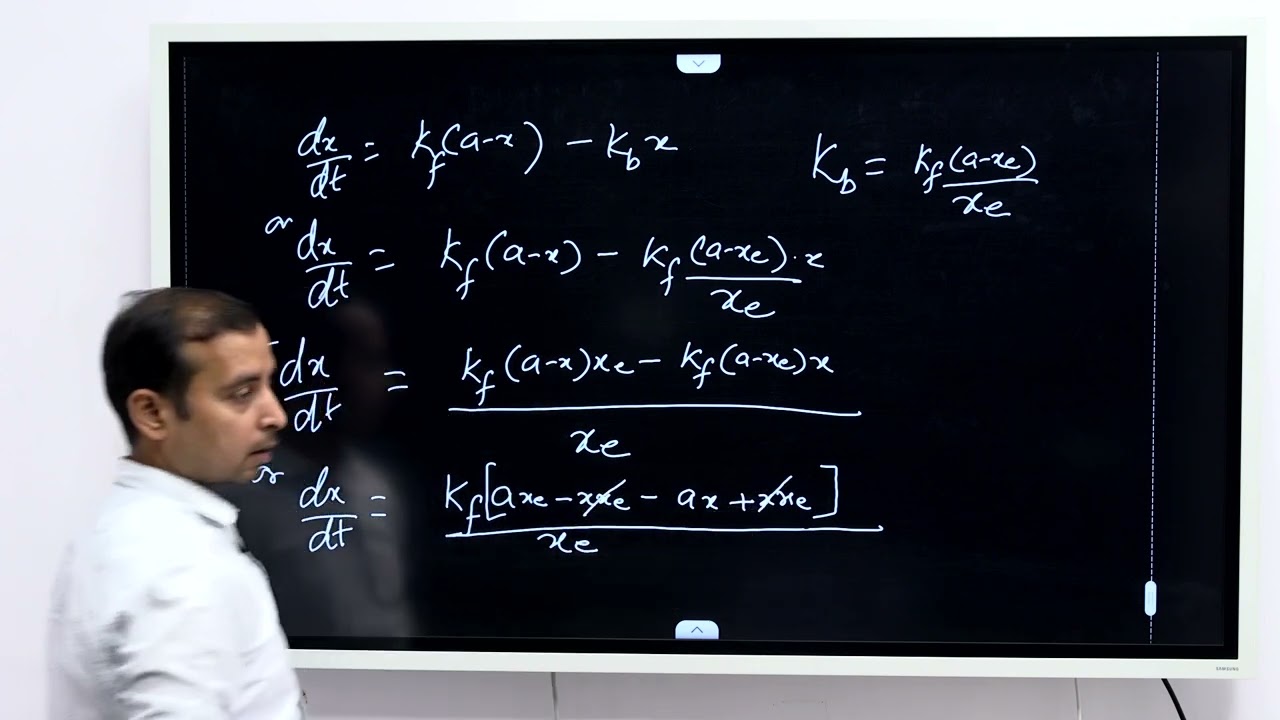 dx/dt = kf(a-x) - kb x
kb = kf(a-xe)/xe
or dx/dt = kf(a-x) - kf (a-xe)/xe · x
dx/dt = (kf(a-x)xe - kf(a-xe)x)/xe
or dx/dt = kf[axe - xxe - ax + xxe]/xe
SAMSUNG